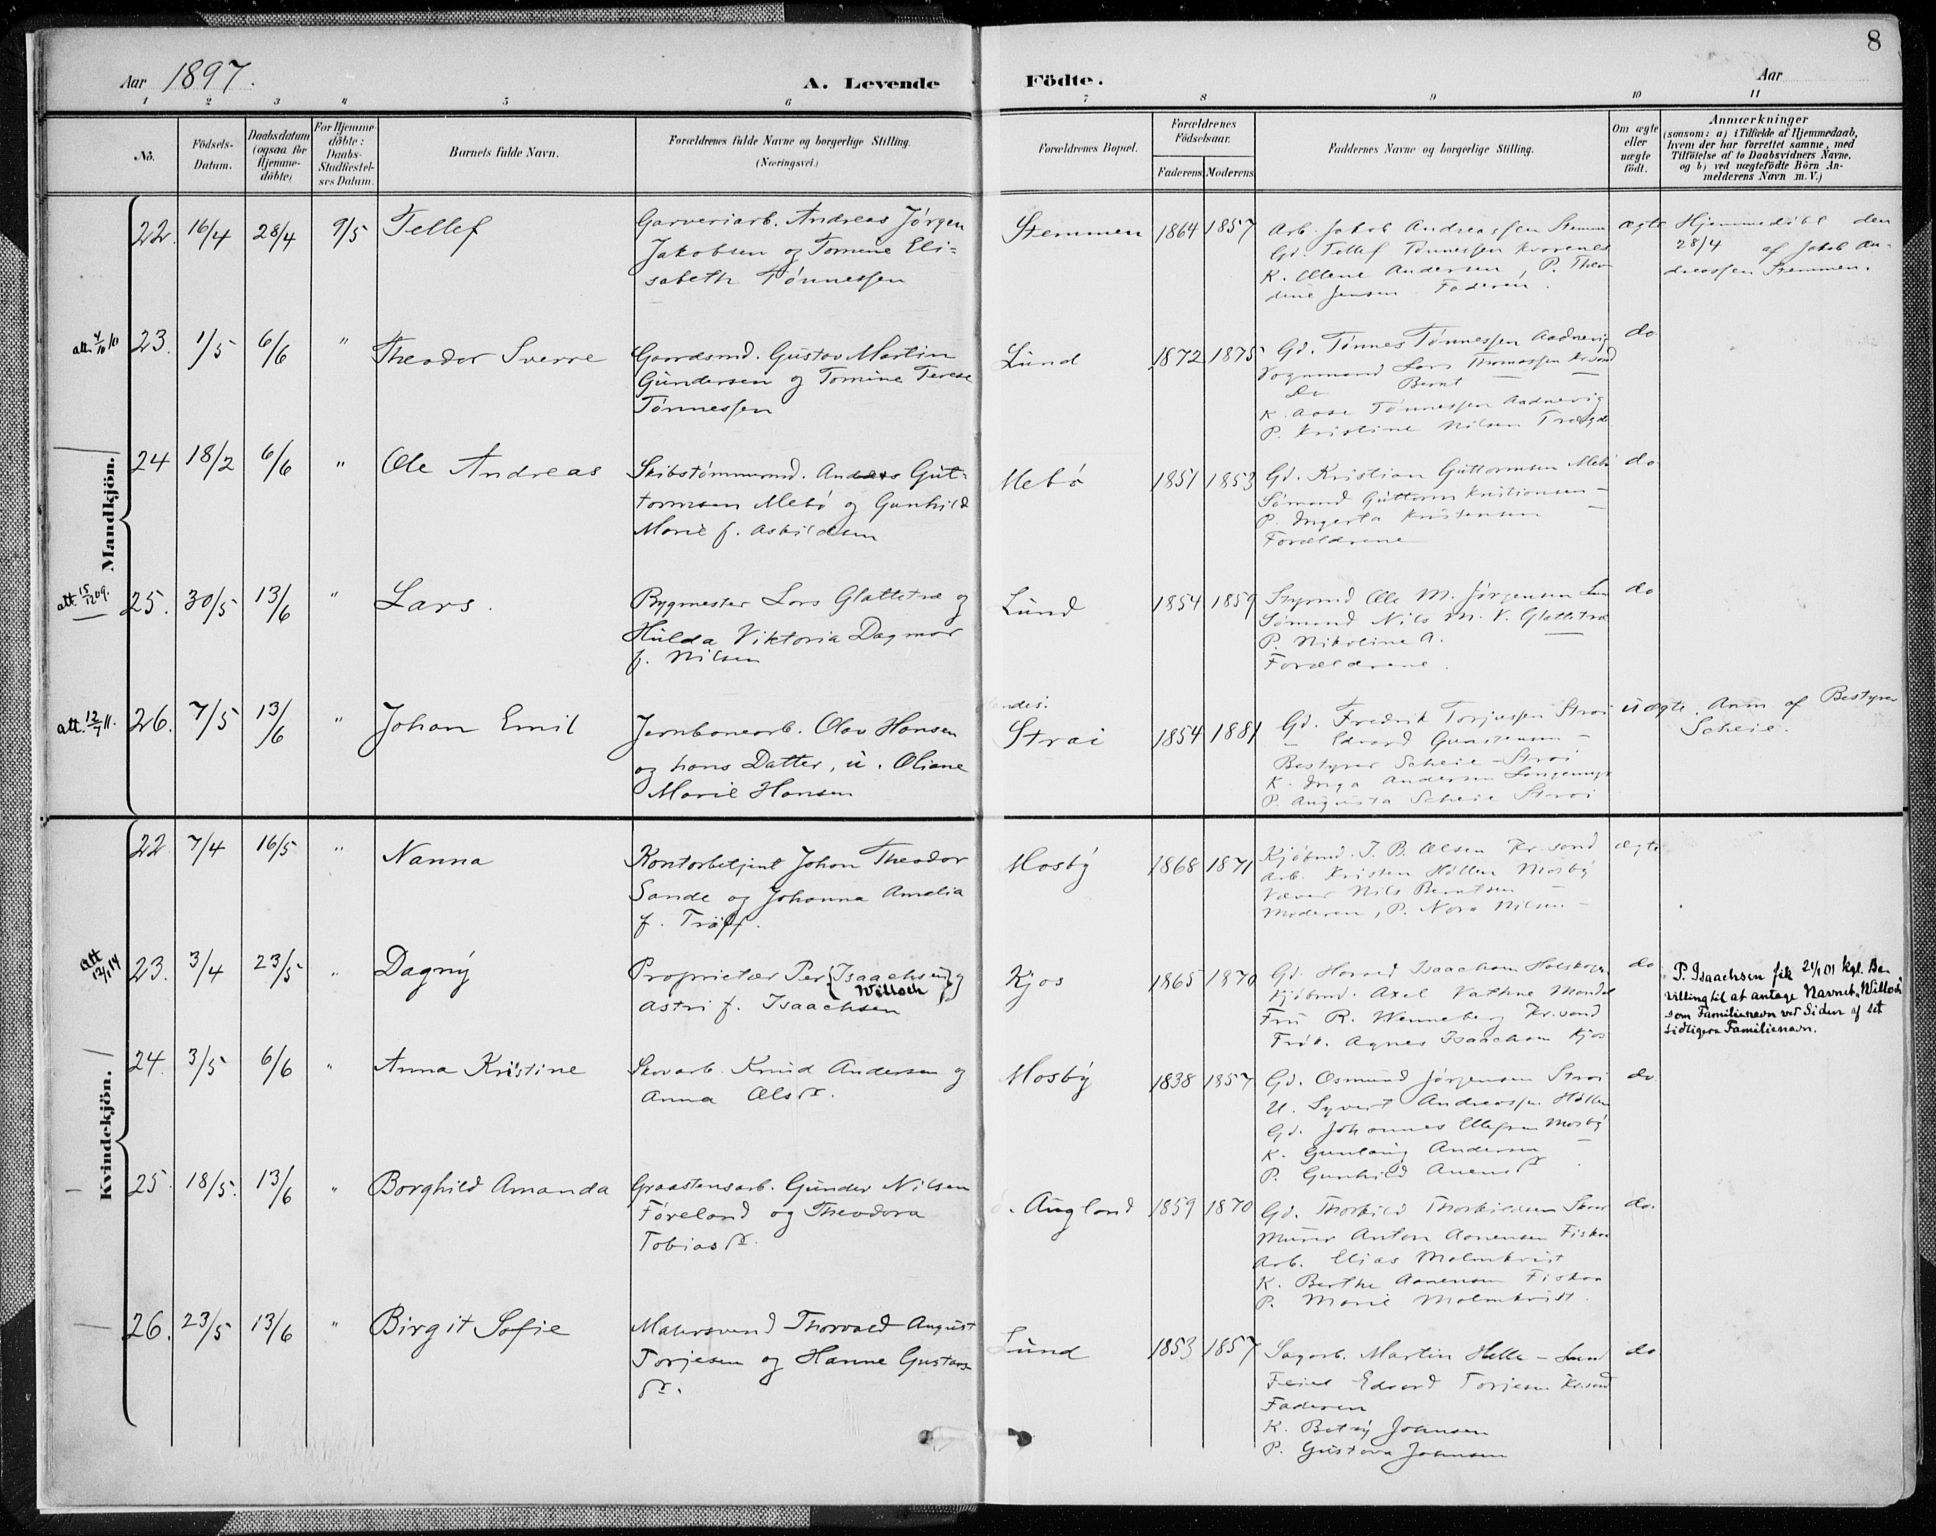 8
Aar 1897.
A. Levende Födte.
Aar
1 2 3 4 5 6 7 8 9 10 11
No.
Födsels-Datum.
Daabsdatum (ogsaa for Hjemme-döbte)
For Hjemme-döbte: Daabs-Stadfæstel-ses Datum.
Barnets fulde Navn.
Forældrenes fulde Navne og borgerlige Stilling.
(Næringsvei.)
Forældrenes Bopæl.
Forældrenes Födselsaar.
Faderens Moderens
Faddernes Navne og borgerlige Stilling.
Om ægte eller uægte födt.
Anmærkninger
(saasom: a) i Tilfælde af Hjemmedaab,
hvem der har forrettet samme, med
Tilföielse af to Daabsvidners Navne,
og b) ved uægtefödte Börn An-
melderens Navn m. V.)
Mandkjön.
22. 16/4 28/4 9/5 Tellef
Garveriarb. Andreas Jørgen
Jakobsen og Tomine Eli-
sabeth Tønnessen
Stemmen 1864 1857
Arb. Jakob Andreassen Stemm
Gd. Tellef Tønnessen
K. Olene Andersen, P. Theo
dine Jensen Faderen.
ægte
Hjemmedøbt den
28/4 af Jakob An-
dreassen Stemmen.
23. 1/5 6/6 " Theodor Sverre
Gaardsmd. Gustav Martin
Gundersen og Tomine Terese
Tønnessen
Lund 1872 1875
Gd. Tønnes Tønnessen Aadnevig
Vognmand Lars Thomassen Kr.sand
Do Bernt —
K. Aase Tønnessen Aadnevig
P. Kristine Nilsen
do
24 18/2 6/6 " Ole Andreas
Skibstømmermd. Anders Gut-
tormsen Mebø og Gunhild
Marie f. Askildsen
Mebø 1851 1853
Gd. Kristian Guttormsen Mebø
Sømand Guttorm Kristiansen —
P. Ingerta Kristensen —
Forældrene
do
att. 15/12 09.
25. 30/5 13/6 " Lars.
Bygmester Lars Glattetræ og
Hulda Viktoria Dagmar
f. Nilsen
Lund 1854 1859
Styrmd Ole M. Jørgensen Lun
Sømand Nils M. V. Glattetræ
P. Nikoline A. —
Forældrene.
do
att. 12/7 11.
26. 7/5 13/6 " Johan Emil
Jernbanearb. Olav Hansen
og hans Datter, u. Oliane
Marie Hansen
Strai 1854 1881
Gd. Fredrik Torjussen Strai
— Edvard Gunstensen —
Bestyrer Scheie — Strai
K. Inga Andersen
P. Augusta Scheie Strai
uægte. Anm af Bestyrer
Scheie.
Kvindekjön.
22 7/4 16/5 " Nanna
Kontorbetjent Johan Theodor
Sande og Johanna Amalia
f. Trølf.
Mosby 1868 1871
Kjøbmd. J. B. Olsen Kr.sand
Arb. Kristen Høllen Mosby
Væver Nils Berntsen —
Moderen, P. Nora Nilsen —
ægte
att 12/1 14
23. 3/4 23/5 " Dagny
Proprietær Per (Isaachsen) og
Willoch
Astri f. Isaachsen
Kjos 1865 1870
Gd. Isaachsen
Kjøbmd. Axel Vathne Mandal
Fru R. Wenneberg Kr.sand
Frøk. Agnes Isaachsen Kjos
do
P. Isaachsen fik 21/1 01 kgl. Be-
villing til at antage Navnet "Willoch"
som Familienavn ved Siden af sit
tidligere Familienavn.
24. 3/5 6/6 " Anna Kristine
Skovarb. Knud Andersen og
Anna Olsdr.
Mosby 1838 1857
Gd. Osmund Jørgensen Strai
U. Syvert Andreassen Høllen
Gd. Johannes Ellefsen Mosby
K. Gunlaug Andersen —
P. Gunhild
do
25. 18/5. 13/6 " Borghild Amanda
Graastensarb. Gunder Nilsen
Føreland og Theodora
Tobiasdr.
Augland 1859 1870
Gd. Thorkild Thorkildsen
Murer Anton Aanensen Fiskaa
Arb. Elias Malmkvist
K. Berthe Aanensen Fiskaa
P. Marie Malmkvist.
do.
26. 23/5 13/6 " Birgit Sofie
Malersvend Thorvald August
Torjesen og Hanne Gustavs
dr.
Lund 1853 1857
Sagarb. Martin Helle — Lund
Feier Edvard Torjesen Kr.sand
Faderen
K. Betsy Johnsen
P. Gustava Johnsen
do